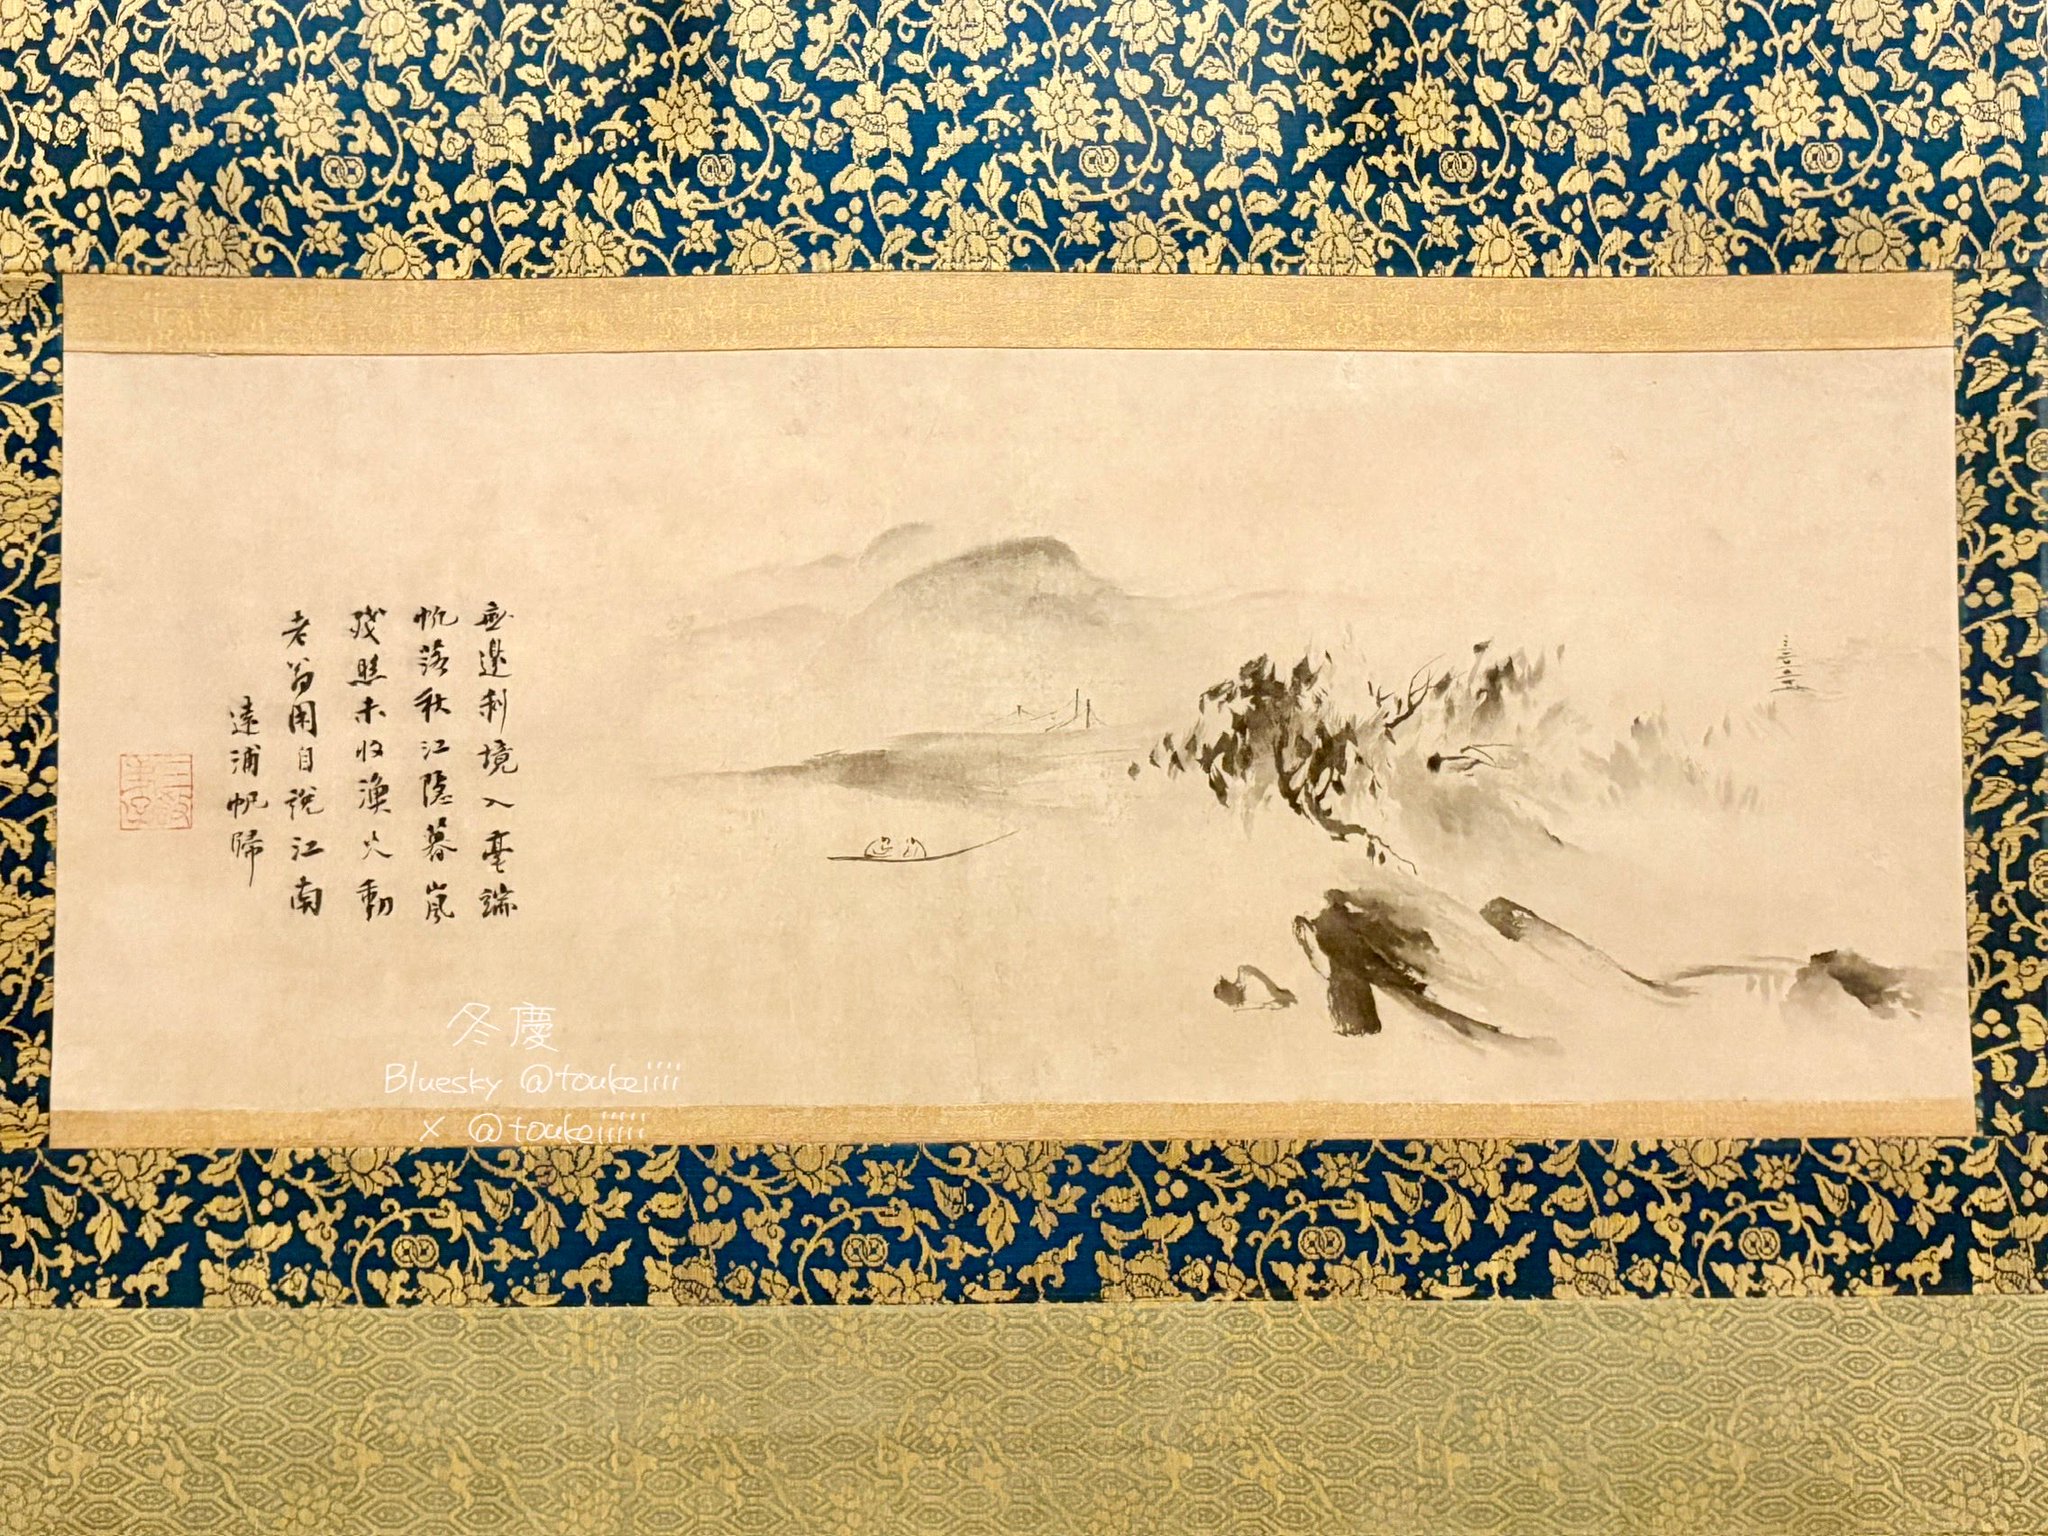 無邊刹境入毫端
帆落秋江隱暮嵐
殘照未收漁火動
老翁閑自說江南
遠浦帆歸
冬慶
Bluesky @toukeiiii
X @toukeiiiii